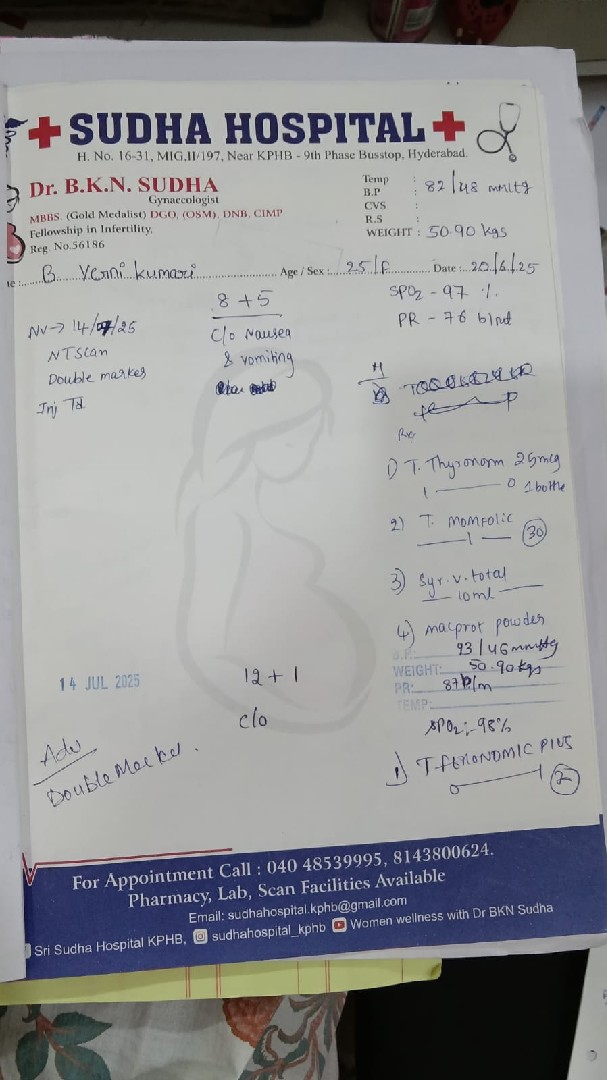 SUDHA HOSPITAL
H. No. 16-31, MIG,II/197, Near KPHB - 9th Phase Busstop, Hyderabad.
Dr. B.K.N. SUDHA
Gynaecologist
MBBS. (Gold Medalist) DGO, (OSM), DNB, CIMP
Fellowship in Infertility,
Reg. No.56186
Temp :
B.P : 82/48 mmHg
CVS :
R.S :
WEIGHT : 50.90 kgs
B. kumari Age / Sex : 25/F Date : 20/6/25
SPO2 - 97 %
PR - 76 b/mt
8 + 5
C/o Nausea
& vomiting
NV → 14/7/25
NT Scan
Double marker
Inj Td
1) T. Thyronorm 25mcg
1 0 1 bottle
2) T. MOMFOLIC
1 30
3) Syr. v. total
10ml
4) macprot powder
B.P: 93/46 mmHg
WEIGHT: 50.90kgs
PR: 87b/m
TEMP:
SPO2:-98%
14 JUL 2025
12 + 1
c/o
Adv
Double Marker.
1) T. FERONOMIC PLUS
0 1 2
For Appointment Call : 040 48539995, 8143800624.
Pharmacy, Lab, Scan Facilities Available
Email: sudhahospital.kphb@gmail.com
Sri Sudha Hospital KPHB, sudhahospital_kphb Women wellness with Dr BKN Sudha